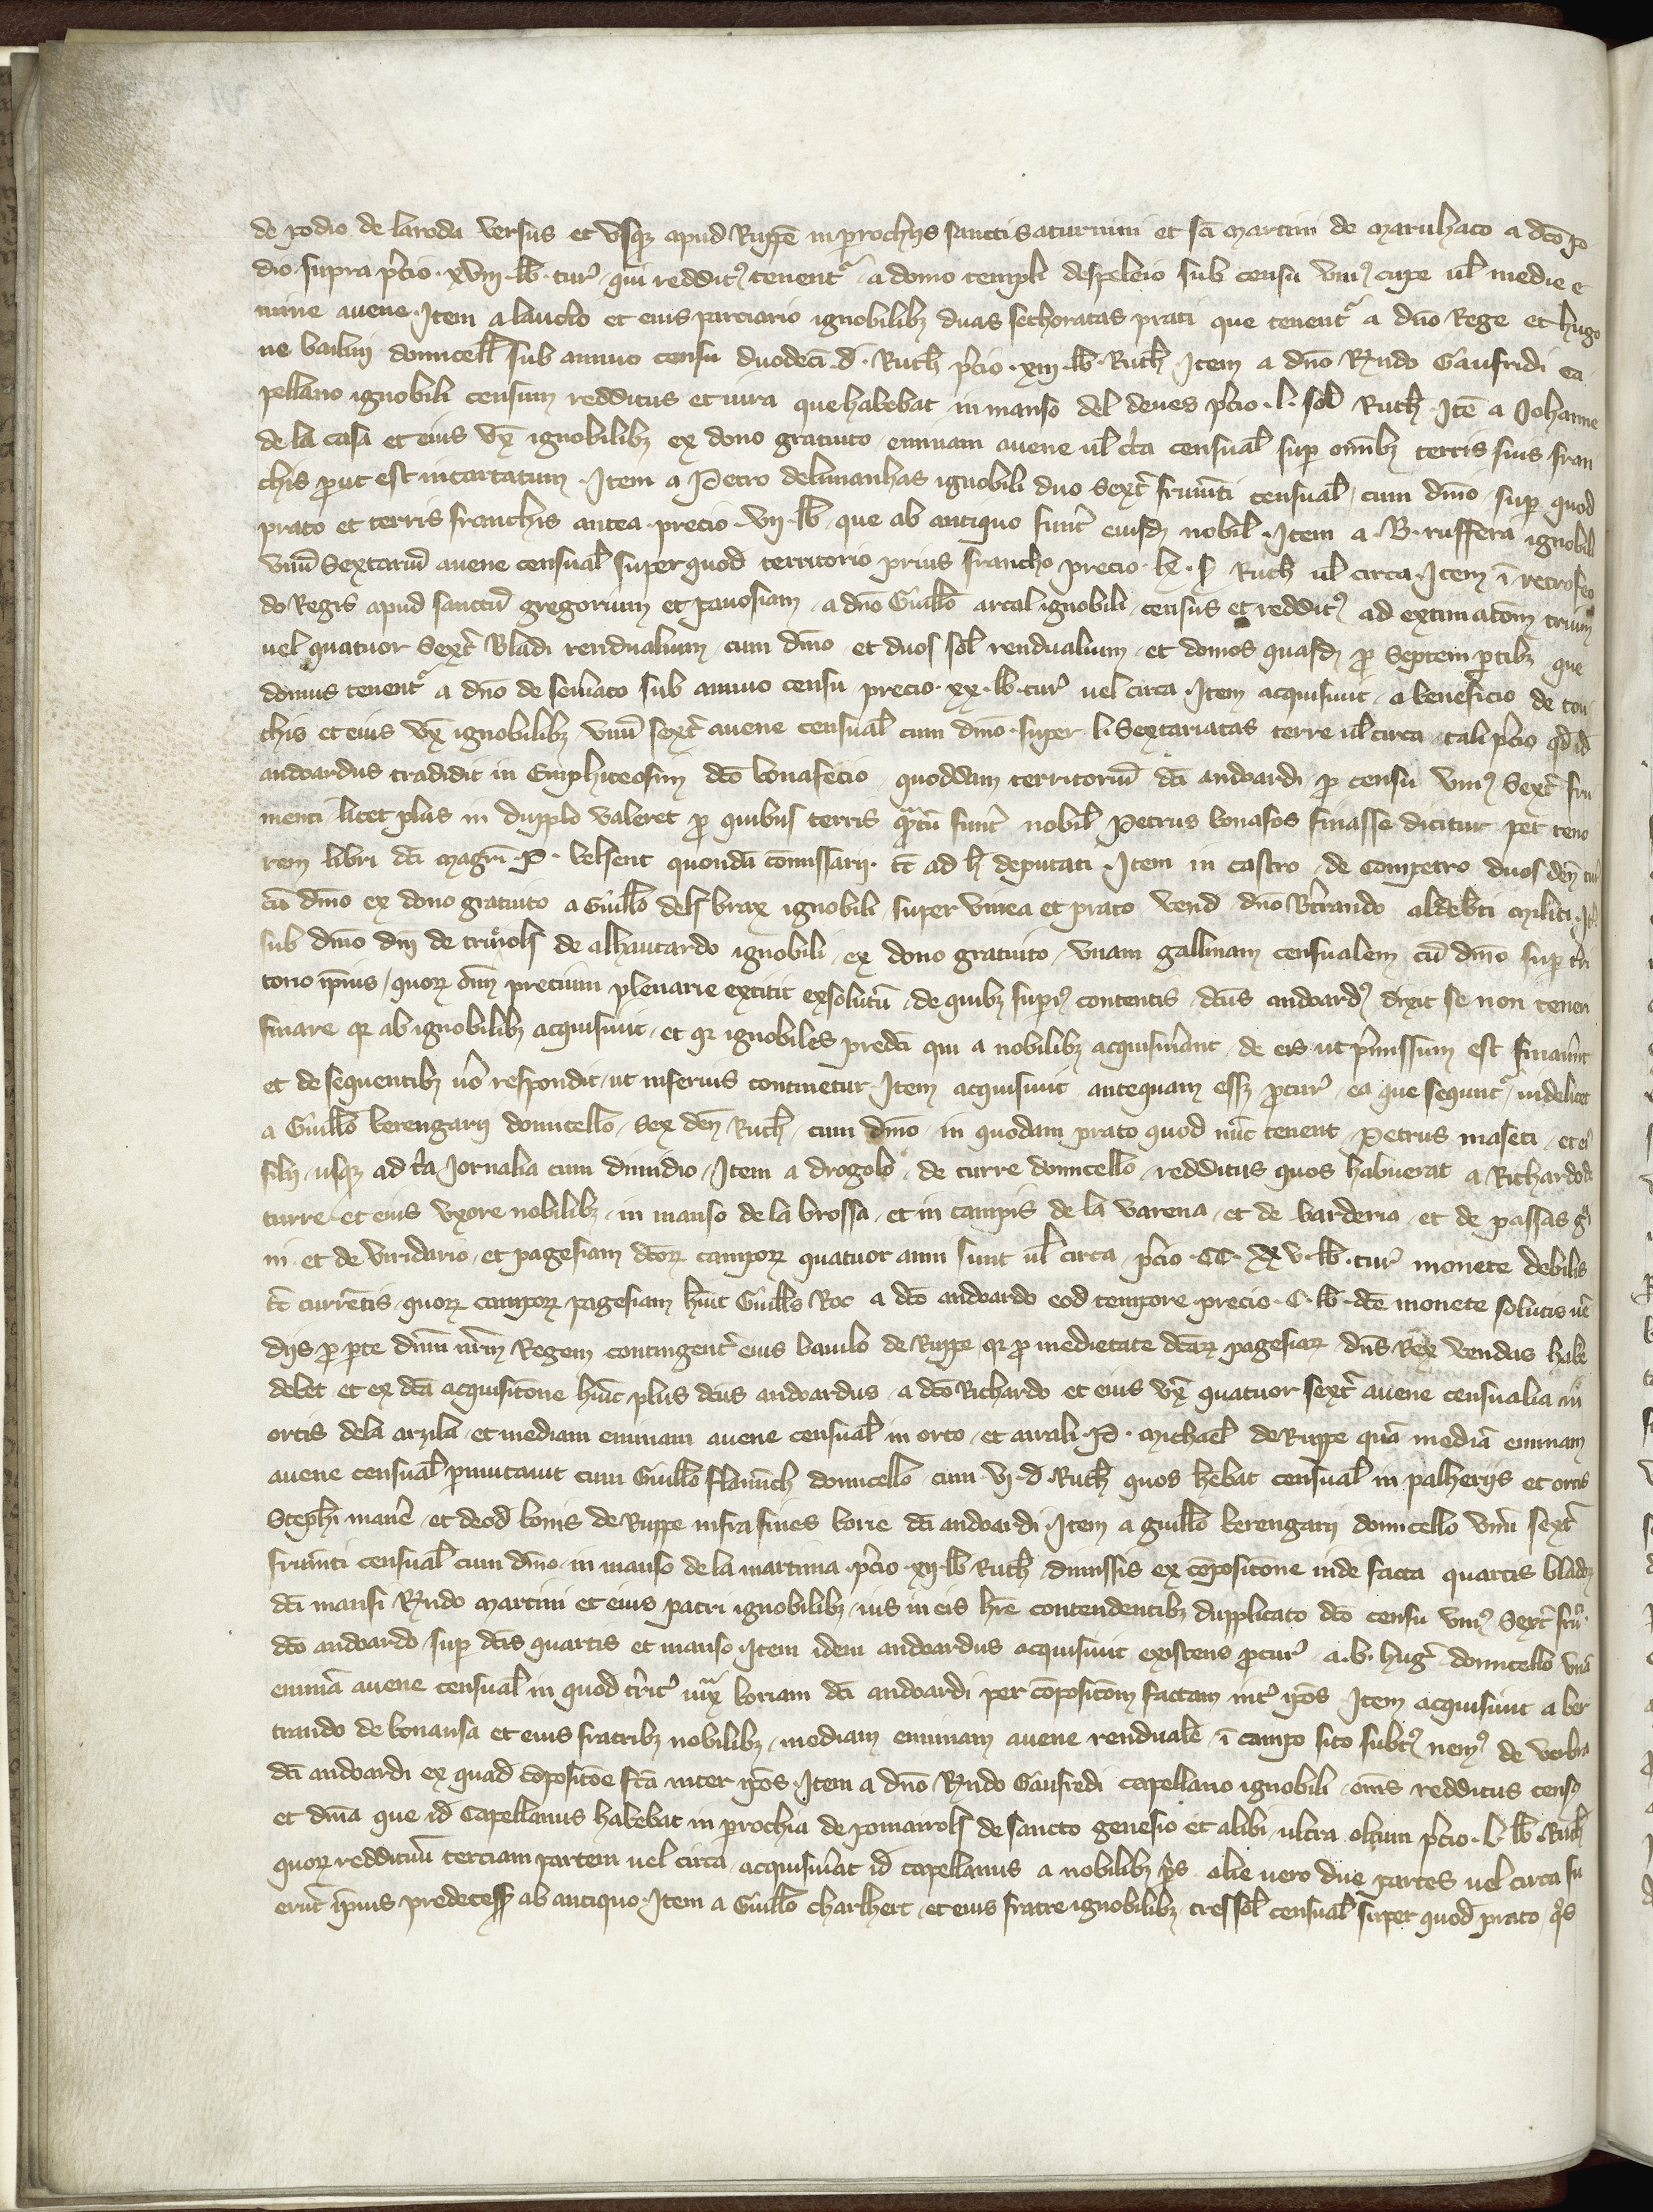 de podio de laroda versus et vsqz apud Ruppē in prochijs sancti saturnini et sci martini de marulhaco a dco po
dio supra pcio xviij lb tur qui reddit tenent a domo templi despeleio sub censu vni cupe ul medie e
mine auene Item a laucto et eius parciario ignobilibz duas sechoratas prati que tenent a dno Rege et hugo
ne bailin domicell sub annuo censu duodeci d Ruth pcio xiij lb Ruth Item a dno Rndo Gaufridi ca
pellano ignobili censum redditus et iura que habebat in manso del deues pcio l sol Ruth Ite a Johanne
de la casa et eius vx ignobilibz ex dono gratuito eminam auene ul circa censual sup omibz terris suis fran
chis put est incartatum Item a Petro delmanhas ignobili duo sext frumti censual cum dnio sup quod
prato et terris franchis antea precio vij lb que ab antiquo funt eiusd nobil Item a B ruffera ignobili
vnu Sextariu auene censual super quod territorio prius francho precio lx s Ruth ul circa Item i retrofeo
do Regis apud sanctu gregorium et panosiam a dno Guillo arcal ignobili census et reddit ad extimatom trium
uel quatuor Sext Bladi rendualium cum dnio et duos sol rendualium et domos quasd p septem ptibz que
domus tenent a dno de seueraco sub annuo censu precio xx lb tur uel circa Item acquisiuit a benefacio de con
chis et eius vx ignobilibz vnu sext auene censual cum dnio super l Sextariatas terre ul circa tali pcio qd id
andoardus tradidit in Emphiteosim dco bonafacio quoddam territoriu dci andoardi p censu vni Sext fru
menti licet plus in dupplo valeret p quibus terris qrtu funt nobil Petrus bonafos finasse dicitur per teno
rem libri dci magri P velsent quonda comissarij tc ad h deputati Item in castro de Competro duos den tur
cu dnio ex dono gratuito a Guillo dels brax ignobili super vinea et prato vend dno Btrando aldebti militi It
sub dnio dni de truiols de alhautardo ignobili ex dono gratuito vnam gallinam censualem cu dnio sup tri
torio ipius quoz oim precium plenarie extitit exsolutu de quibz supi contentis dcus andoard dixit se non teneri
finare qr ab ignobilibz acquisiuit et qr ignobiles predci qui a nobilibz acquisiuerant de eis ut pmissum est finaunt
et de sequentibz uo respondit ut inferius continetur Item acquisiuit antequam essz pcur ea que sequnt uidelicet
a Guillo berengarij domicello sex den Ruth cum dnio in quodam prato quod nuc tenent Petrus maseti et ei
filij usqz ad tria Jornalia cum dimidio Item a drogolo de turre domicello redditus quos habuerat a Richardo de
turre et eius vxore nobilibz in manso de la brossa et in campis de la varena et de barderia et de passas g
ni et de viridario et pagesiam dcoz campoz quatuor anni sunt ul circa pcio CC xx v lb tur monete debilis
tc curretis quoz campoz pagesiam huit Guills Roc a dco andoardo eod tempore precio C lb dce monete solutis ue
dijs p pte dnm nrm Regem contingent eius baiulo de Ruppe qr p medietate dcaz pagesiaz dns Rex vendas habe
debet et ex dca acquisitone huit plus dcus andoardus a dco Richardo et eius vx quatuor sext auene censualia in
ortis dela arzila et mediam eminam auene censual in orto et airali P Michael de Ruppe qua media eminam
auene censual pmutauit cum Guillo flamench domicello cum vj d Ruth quos hebat censual in palherijs et ortis
Stephi manen et deod bonis de Ruppe infra fines borie dci andoardi Item a guillo berengarij domicello vnu sext
frumti censual cum dnio in manso de la martinia pcio xij lb Ruth dimissis ex compositone inde facta quartis bladoz
dci mansi Rndo martini et eius patri ignobilibz ius in eis hre contendentibz dupplicato dco censu vni Sext fru
dco andoardo sup dcis quartis et manso Item idem andoardus acquisiuit existens pcur a b hug domicello vna
emina auene censual in quod trit iux boriam dci andoardi per compositom factam int ipos Item acquisiuit a ber
trando de bonausa et eius fratribz nobilibz mediam eminam auene rendualē i campo sito subt nem de verbia
dci andoardi ex quad compositoe fca inter ipos Item a dno Rndo Gaufredi capellano ignobili oms redditus censo
et dnia que id Capellanus habebat in prochia de pomairols de sancto genesio et alibi ultra oltum pcio l lb Ruth
quoz reddituu terciam partem uel circa acquisiuat id capellanus a nobilibz pis alie uero due partes uel circa fu
erut ipius predecess ab antiquo Item a Guillo charlhert et eius fratre ignobilibz tres sol censual super quod prato qos